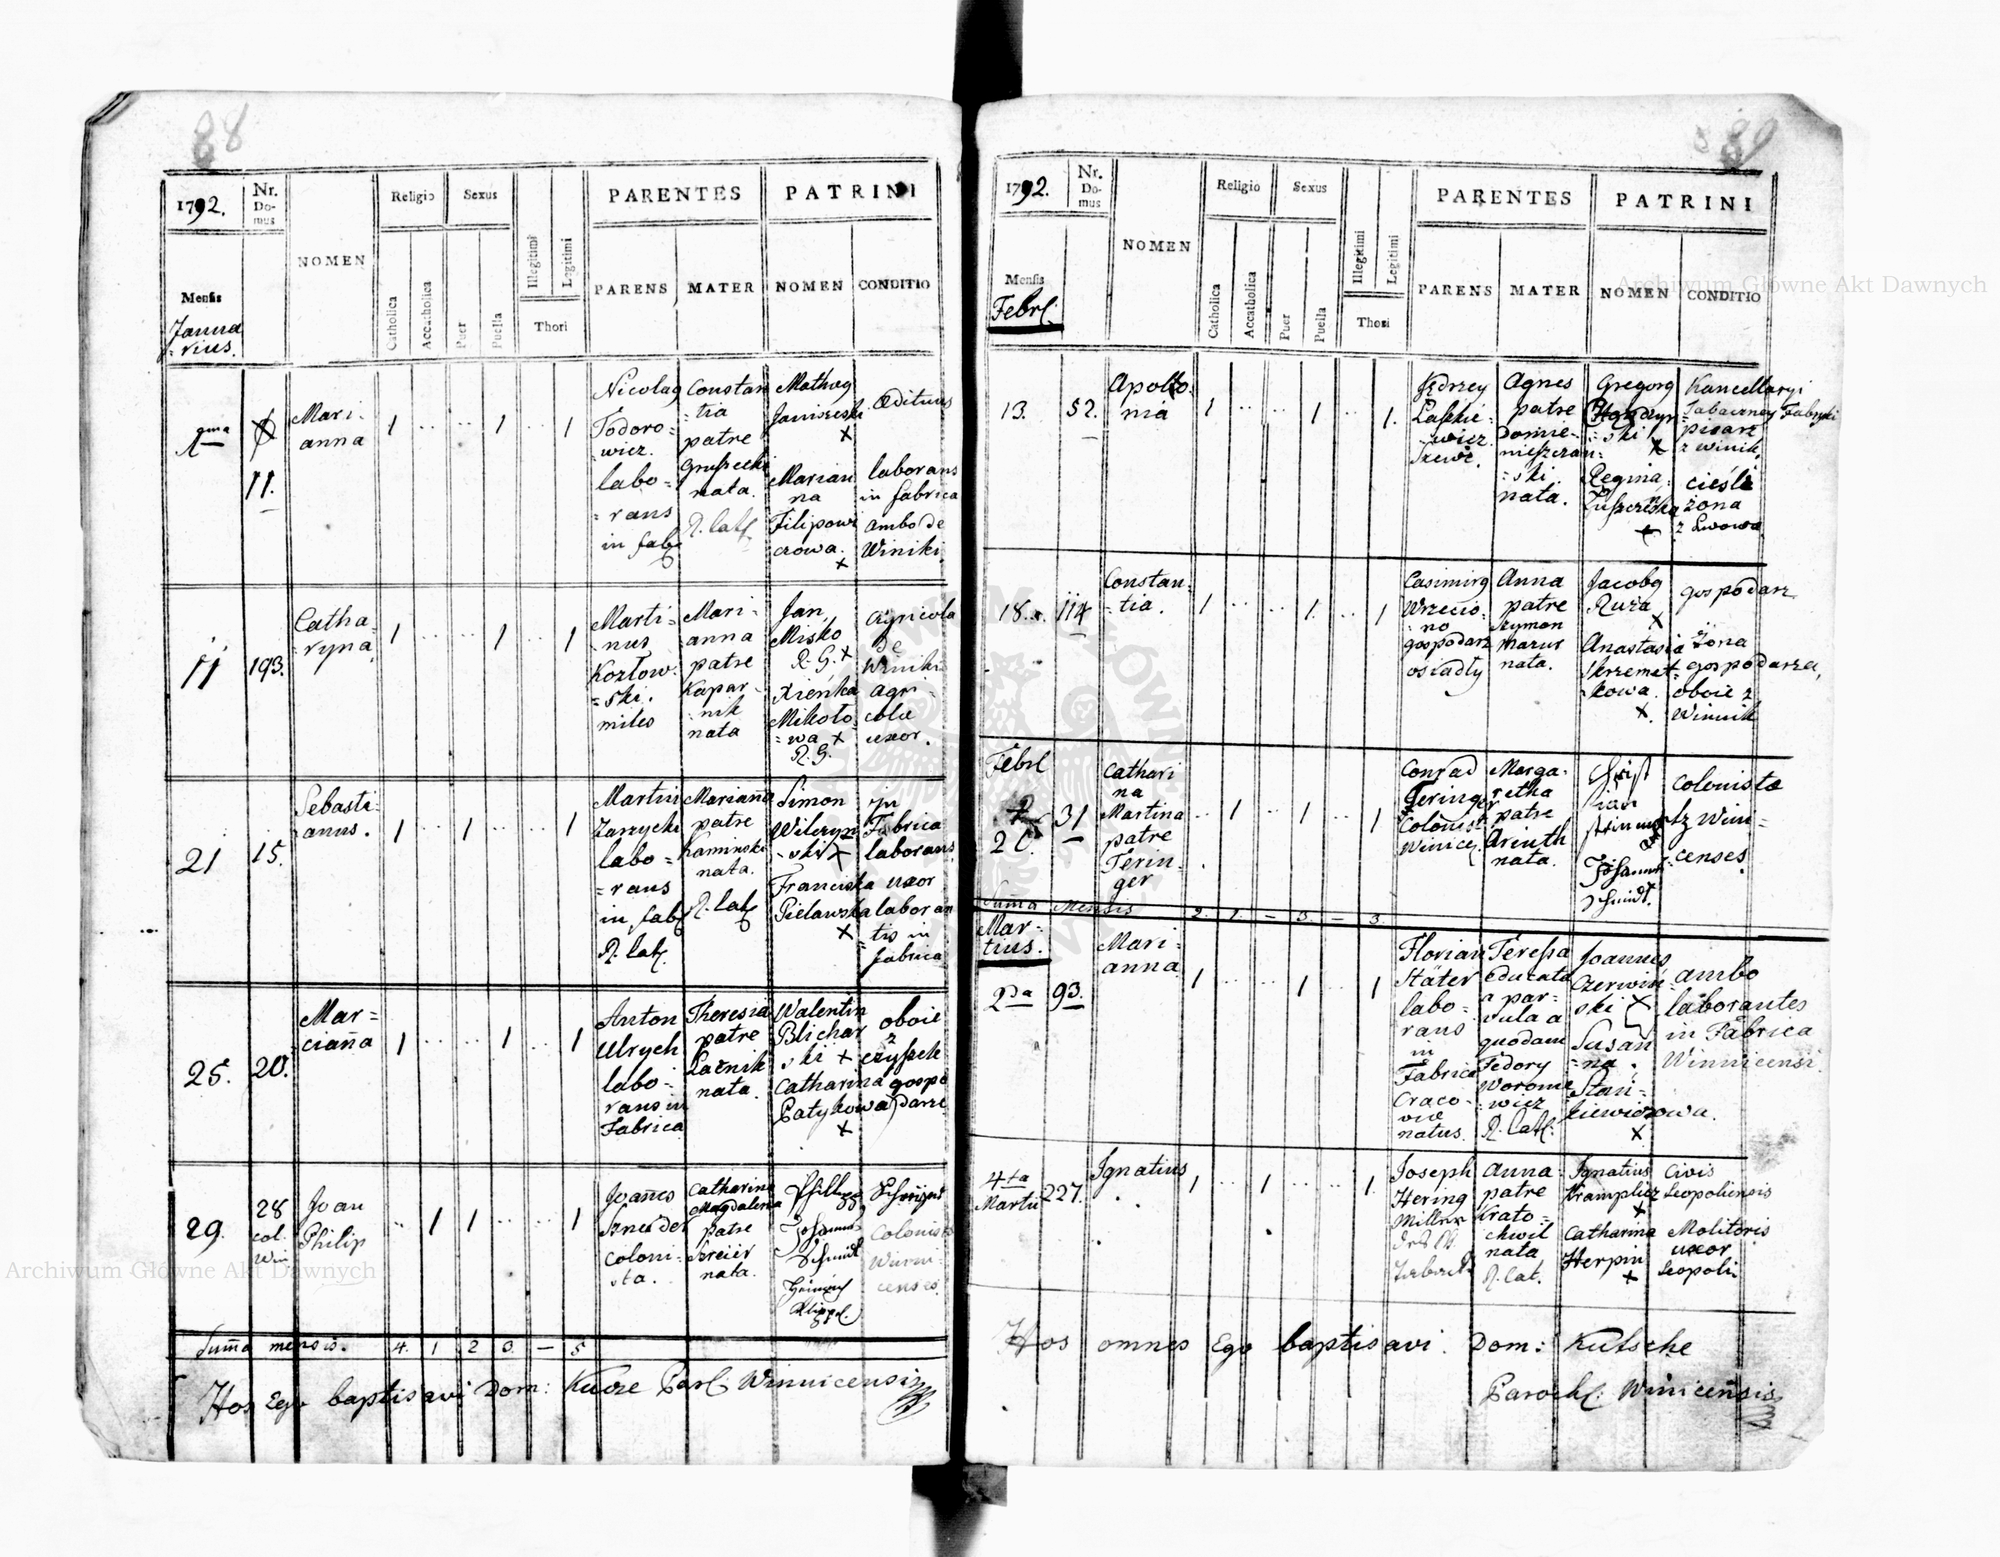 88
1792.
Nr. Domus
NOMEN
Religio
Sexus
PARENTES
PATRINI
Mensis
Catholica
Accatholica
Puer
Puella
Illegitimi
Legitimi
Thori
PARENS
MATER
NOMEN
CONDITIO
Janua
=rius.
1ma
11.
Mari=
anna
1 .. .. 1 .. 1
Nicolaq
Todoro=
wicz.
labo=
=rans
in fab
Constan
=tia
patre
Gruszecki
nata.
R. lat
Matheq
Janiszeski
x
Marian
na
Filipowi
czowa.
x
Æditus
laborans
in fabrica
ambo de
Winiki
11
193.
Catha=
=ryna
1 .. .. 1 .. 1
Marti=
=nus
Kozłow=
=ski.
miles
Mari=
=anna
patre
Kapar=
=nik
nata
Jan,
Misko
R. G. x
Xieńka
Mikoło=
=wa x
R. G.
Agricola
de
Winiki
agri=
colæ
uxor.
21
15.
Sebasti=
=anus.
1 .. 1 .. .. 1
Martin
Zarzycki
labo=
=rans
in fab
R. lat.
Marianna
patre
Kaminski
nata.
R. lat
Simon
Wilczyn
=ski x
Franciska
Pielawska
x
in
Fabrica
laborans
uxor
laboran
=tis in
fabrica
25.
20.
Mar=
cianna
1 .. .. 1 .. 1
Anton
Ulrych
labo=
rans in
Fabrica
Theresia
patre
Łacnik
nata.
Walentin
Blichar
ski x
Catharina
Patykowa
x
oboie
z
czyszek
gospo
darze
29.
28
col.
Win
Joan
Philip
.. 1 1 .. .. 1
Joañes
Szneider
coloni=
sta.
Catharina
Magdalena
patre
Szreier
nata.
Phillipp
Johannes
Schmidt
Heinrich
Klippel.
Colonistæ
Winni=
censes.
Sum̃a mensis. 4. 1 2 3 — 5
Hos Ego baptisavi Dom: Kutze Par Winnicensis
89
1792.
Nr. Domus
NOMEN
Religio
Sexus
PARENTES
PATRINI
Mensis
Catholica
Accatholica
Puer
Puella
Illegitimi
Legitimi
Thori
PARENS
MATER
NOMEN
CONDITIO
Febr.
13.
52.
Apollo=
nia
1 .. .. 1 .. 1.
Jędrzey
Laskie=
=wicz
szewc.
Agnes
patre
Domie=
nieszczan=
=ski.
nata.
Gregorq
=ski
x
Regina
x
Kancellaryi
Tabaczney Fabryki
pisarz
z Winik.
cieśli
żona
z Lwowa
18.
114
Constan=
=tia.
1 .. .. 1 .. 1
Casimirq
Wrzecio=
=no
gospodarz
osiadły
Anna
patre
Szymon
Mazur
nata.
Jacobq
Ruza
x
Anastasia
Skrzemet=
=kowa.
x.
gospodarz
żona
gospodarza,
oboie z
Winnik
Febr
20.
31
Cathari
na
Martina
patre
Terin=
ger
.. 1 .. 1 .. 1
Conrad
Teringer
Colonist
Winice
Marga=
retha
patre
Arinth
nata.
Christ
ian
Johann
Schmidt.
Colonistæ
Wini=
censes.
Summa Mensis 2. 1. — 3. — 3.
Mar=
tius.
2da
93.
Mari=
anna
1 .. .. 1 .. 1
Florian
Stäter
labo=
rans
in
Fabrica
Craco=
viæ
natus.
Teressa
educata
a par=
vula a
quodam
Fedory
Worono
=wicz
R. lat:
Joannes
Czerwin=
ski x
Susan
=na.
Stan=
kiewiczowa.
x
ambo
laborantes
in Fabrica
Winnicensi.
4ta
Martii
227.
Ignatius
1 .. 1 .. .. 1.
Joseph
Hering
Miller
Anna
patre
Krato=
chwil
nata
R. lat.
Ignatius
Krampliez
x
Catharina
Herpin
x
Civis
Leopoliensis
Molitoris
uxor
Leopoli
Hos omnes Ego baptisavi. Dom: Kutsche
Paroch: Winicensis
Archiwum Główne Akt Dawnych
Archiwum Główne Akt Dawnych